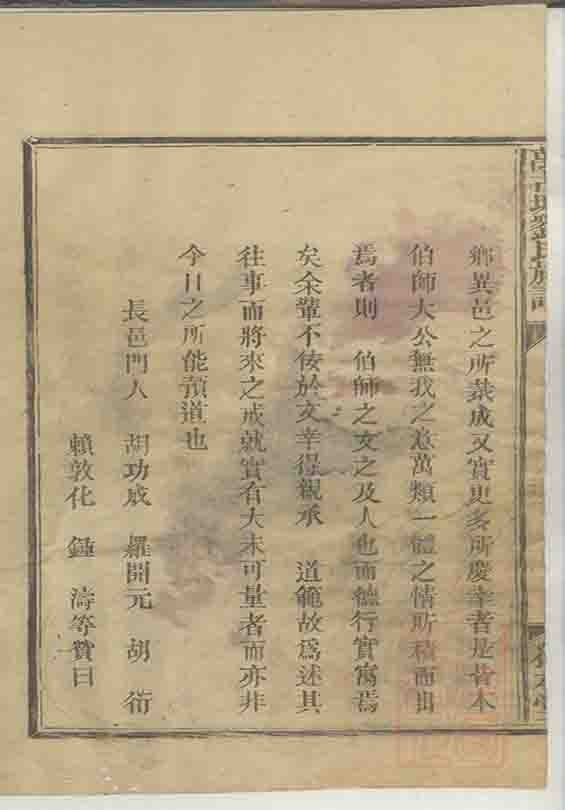 鄉異邑之所裁成又實更多所慶幸者是皆本
伯師大公無我之意萬類一體之情所積而出
焉者則 伯師之文之及人也而德行實寓焉
矣余輩不佞於文幸得親承 道範故爲述其
往事而將來之成就實有大未可量者而亦非
今日之所能預道也
長邑門人 胡功成 羅開元 胡 衕
賴敦化 鍾 濤等贊曰
劉氏族